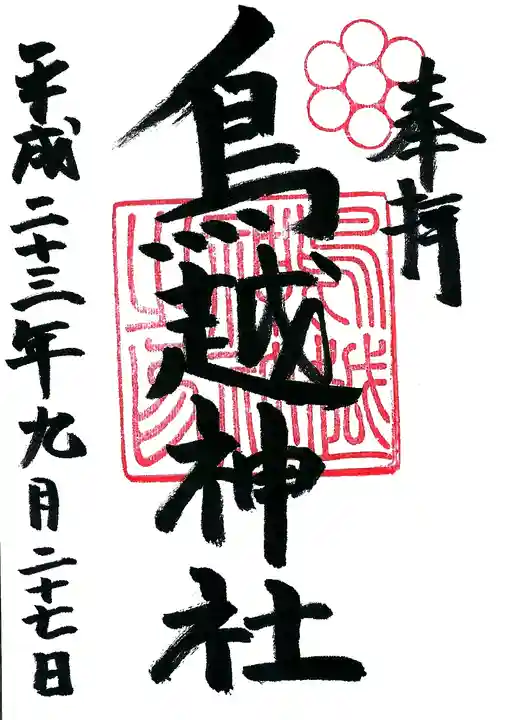 奉拝
鳥越神社
平成二十三年九月二十七日